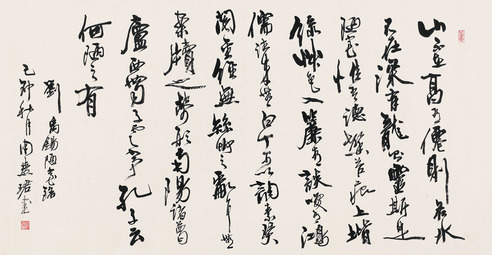 山不在高有僊則名水
不在深有龍則靈斯是
陋室惟吾德馨苔痕上堦
綠草色入簾青談笑有鴻
儒往來無白丁可以調素琴
閱金經無絲竹之亂耳無
案牘之勞形南陽諸葛
廬西蜀子雲亭孔子云
何陋之有
劉禹錫陋室銘
己卯秋月周慧珺書